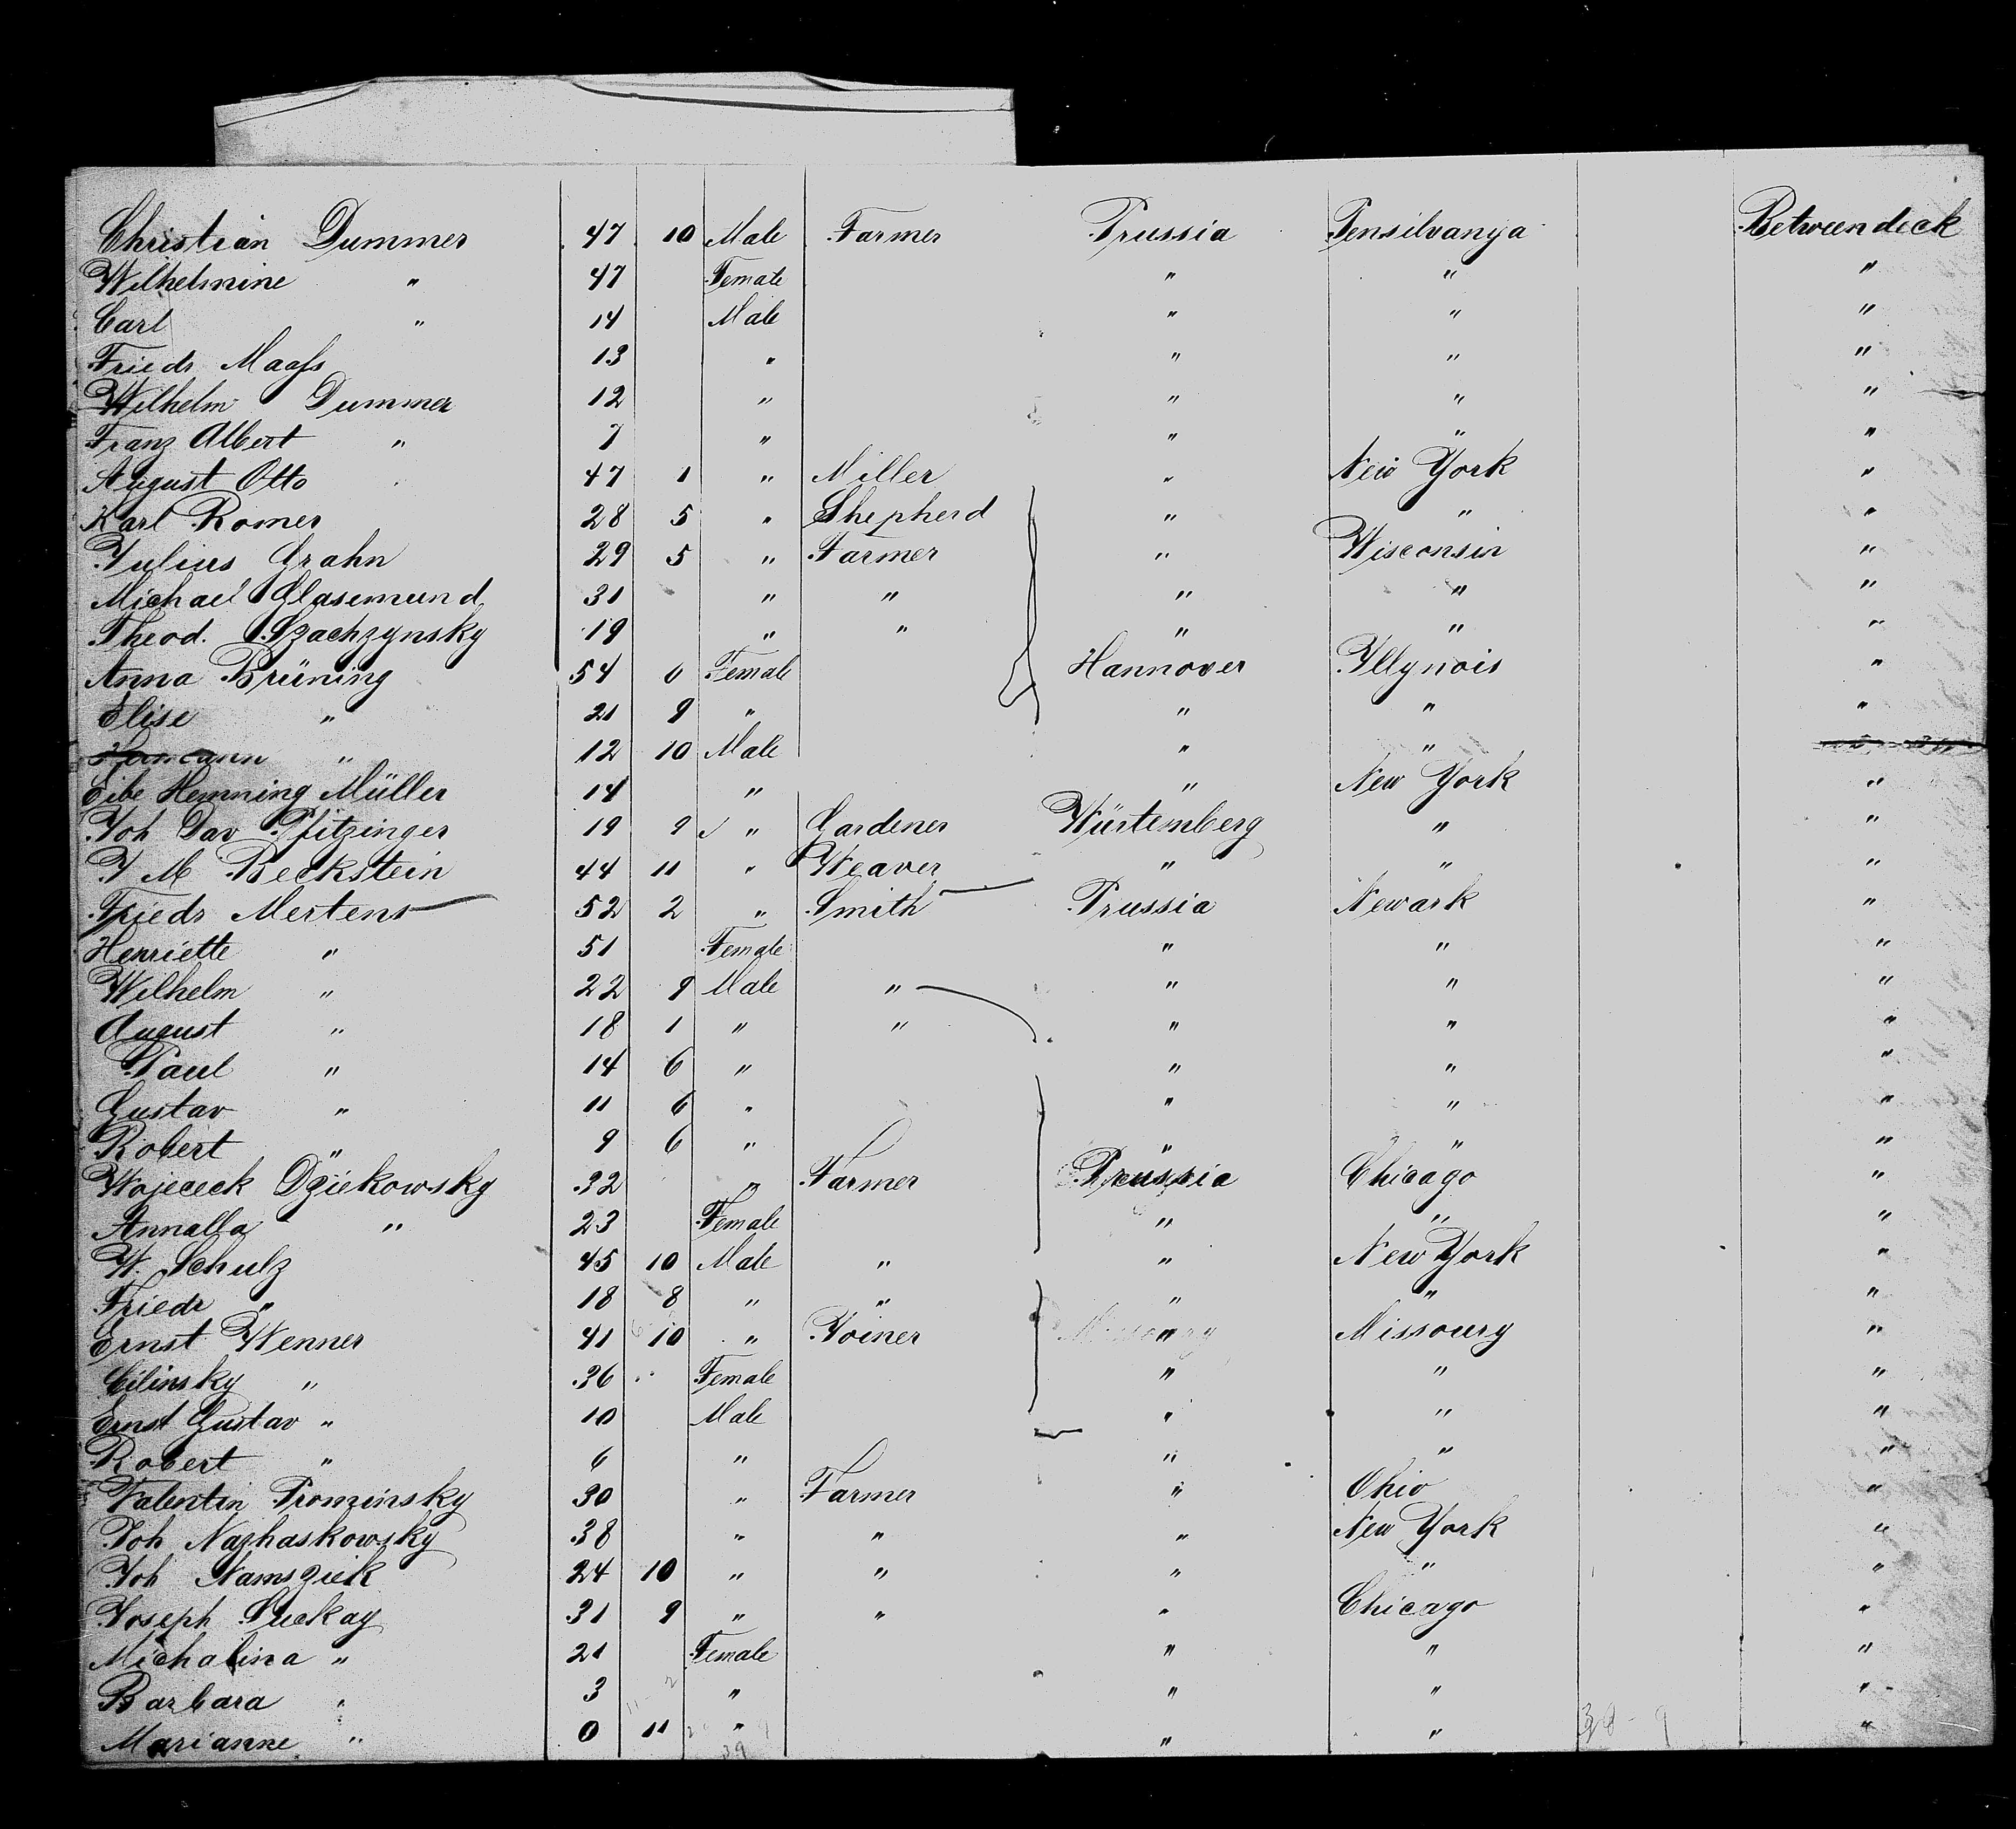 Christian Dummer 47 10 Male Farmer Prussia Pensilvanya Between deck
Wilhelmine " 47 Female " " "
Carl " 14 Male " " "
Friedr Maass 13 " " " "
Wilhelm Dummer 12 " " " "
Franz Albert " 7 " " " "
August Otto 47 1 " Miller " New York "
Karl Romer 28 5 " Shepherd " " "
Julius Grahn 29 5 " Farmer " Wisconsin "
Michael Glasemund 31 " " " " "
Theod. Szachzynsky 19 " " " " "
Anna Brüning 54 0 Female Hannover Yllynois "
Elise " 21 9 " " " "
" 12 10 Male " "
Eibe Hemning Müller 14 " " New York "
Joh Dav Pfitzinger 19 9 " Gardener Würtemberg " "
J M Beckstein 44 11 " Weaver " " "
Friedr Mertens 52 2 " Smith Prussia Newark "
Henriette " 51 Female " " "
Wilhelm " 22 9 Male " " " "
August " 18 1 " " " " "
Paul " 14 6 " " " "
Gustav " 11 6 " " " "
Robert " 9 6 " " " "
Wojececk Dziekowsky 32 " Farmer Prussia Chicago "
Annalla " 23 Female " " "
W. Schulz 45 10 Male " " New York "
Friedr " 18 8 " " " " "
Ernst Wenner 41 10 " Joiner " Missoury "
Cilinsky " 36 Female " " "
Ernst Gustav " 10 Male " " "
Robert " 6 " " " "
Valentin Prominsky 30 " Farmer " Ohio "
Joh Nazhaskowsky 38 " " " New York "
Joh Namsziek 24 10 " " " " "
Joseph Suckay 31 9 " " " Chicago "
Michalina " 21 Female " " "
Barbara " 3 " " " "
Marianne " 0 11 " " " "
39